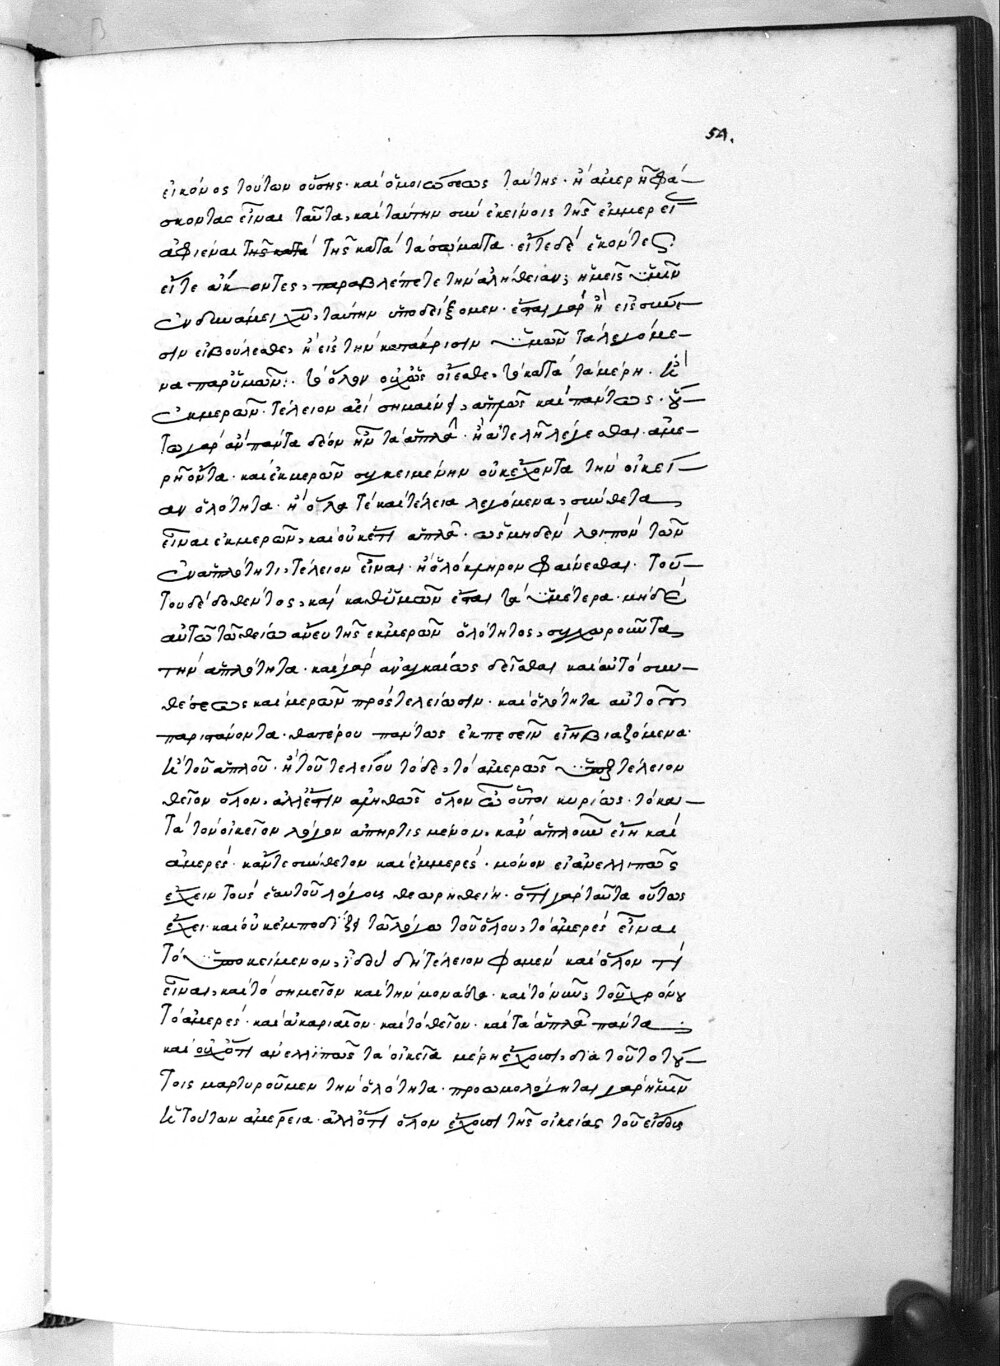 54.
εἰκόνος τούτων οὔσης· καὶ ὁμοιώσεως ταύτης· ἢ ἀμερῆ φά-
σκοντας εἶναι ταῦτα, καὶ ταύτην σὺν ἐκείνοις τῆς ἐμμερεῖ
ἀφιέναι τῆς κατὰ τῆς κατὰ τὰ σώματα· εἴτε δὲ ἑκόντες
εἴτε ἄκοντες, παραβλέπετε τὴν ἀλήθειαν, ἡμεῖς ὑμῖν
ἐν δυνάμει χυ, ταύτην ὑποδείξομεν· ἔσται γὰρ ἢ εἰς σύνε-
σιν εἰ βούλεσθε, ἢ εἰς τὴν κατάκρισιν ὑμῶν τὰ λεγόμε-
να παρ' ὑμῶν: τὸ ὅλον οὐχ ὡς οἴεσθε, τὸ κατὰ τὰ μέρη· καὶ
ἐκ μερῶν· τέλειον ἀεὶ σημαίνει, ἁπλῶς καὶ πάντως· οὕ-
τω γὰρ ἂν πάντα δέον ἦν τὰ ἁπλᾶ· ἢ ἀτελῆ λέγεσθαι· ἀμε-
ρῆ ὄντα· καὶ ἐκ μερῶν συγκειμένην οὐκ ἔχοντα τὴν οἰκεί-
αν ὁλότητα· ἢ ὅλα τὲ καὶ τέλεια λεγόμενα, σύνθετα
εἶναι ἐκ μερῶν, καὶ οὐκέτι ἁπλᾶ· ὡς μηδὲν λοιπὸν τῶν
ἐν ἁπλότητι, τέλειον εἶναι· ἢ ὁλόκληρον φαίνεσθαι· τού-
του δὲ δοθέντος, καὶ καθ' ὑμῶν ἔσται τὰ ὑμέτερα· μηδὲ
αὐτῶ τῶ θείω ἄνευ τῆς ἐκ μερῶν ὁλότητος, συγχωροῦντα
τὴν ἁπλότητα· καὶ γὰρ ἀναγκαίως δεῖσθαι καὶ αὐτὸ συν-
θέσεως καὶ μερῶν πρὸς τελείωσιν· καὶ ὁλότητα αὐτοῦ
παριστάνοντα· θατέρου πάντως ἐκπεσεῖν εἴη βιαζόμενα·
καὶ τοῦ ἁπλοῦ· ἢ τοῦ τελείου τόδε, τὸ ἀμερῶς τέλειον
θεῖον ὅλον, ἀλλ' ἔστιν ἀληθῶς ὅλον κυρίως· τὸ κα-
τὰ τὸν οἰκεῖον λόγον ἀπηρτισμένον, κἂν ἁπλοῦν εἴη καὶ
ἀμερές· κἄν τε σύνθετον καὶ ἐμμερές· μόνον εἰ ἀνελλιπῶς
ἔχειν τοὺς ἑαυτοῦ λόγους θεωρηθείη· ὅτι γὰρ ταῦτα οὕτως
ἔχει· καὶ οὐκ ἐμποδίζει τῶ λόγω τοῦ ὅλου, τὸ ἀμερὲς εἶναι
τὸ ὑποκείμενον, ἰδοὺ δὴ τέλειον φαμὲν καὶ ὅλον τὶ
εἶναι, καὶ τὸ σημεῖον καὶ τὴν μονάδα· καὶ τὸ νῦν, τοῦ χρόνου
τὸ ἀμερές· καὶ ἀκαριαῖον· καὶ τὸ θεῖον· καὶ τὰ ἁπλᾶ πάντα
καὶ οὐχ ὅτι ἀνελλιπῶς τὰ οἰκεῖα μέρη ἔχουσι, διὰ τοῦτο τού-
τοις μαρτυροῦμεν τὴν ὁλότητα· προωμολόγηται γὰρ ἡμῖν
καὶ τούτων ἀμέρεια· ἀλλ' ὅτι ὅλον ἔχουσι τῆς οἰκείας τοῦ εἴδους